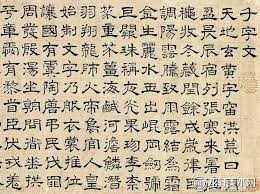 千字文
天地玄黃宇宙洪荒日月
盈昃辰宿列張寒來暑往
秋收冬藏閏餘成歲律呂
調陽雲騰致雨露結為霜
金生麗水玉出崐岡劍號
巨闕珠稱夜光果珍李柰
菜重芥薑海鹹河淡鱗潛
羽翔龍師火帝鳥官人皇
始制文字乃服衣裳推位
讓國有虞陶唐弔民伐罪
周發殷湯坐朝問道垂拱
平章愛育黎首臣伏戎羌